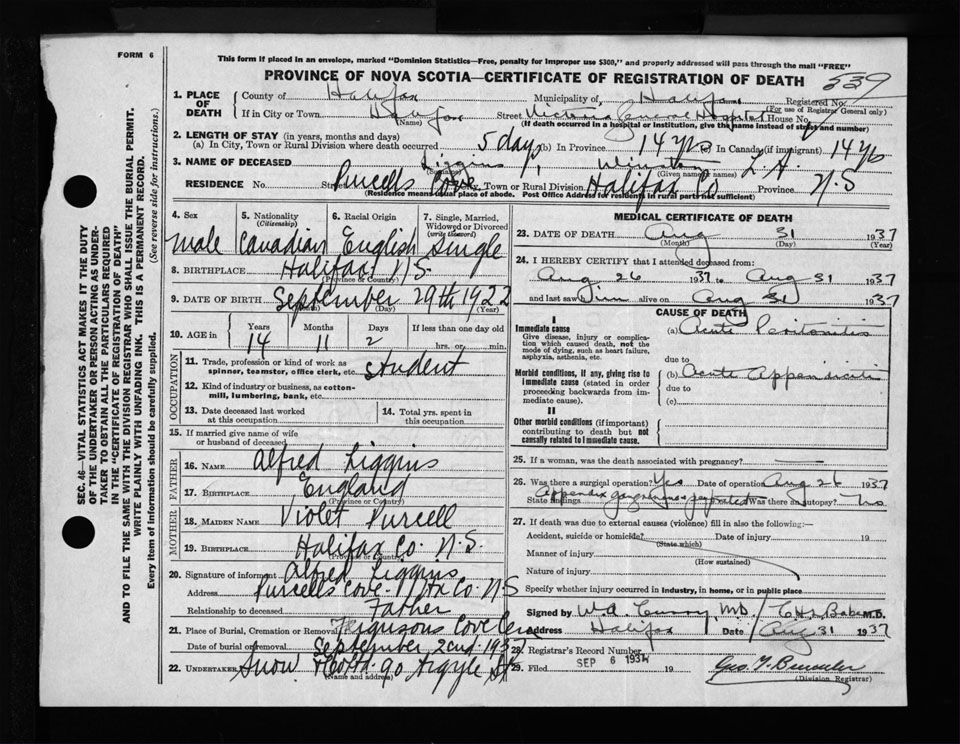 FORM 6
This form if placed in an envelope, marked "Dominion Statistics—Free, penalty for improper use $300," and properly addressed will pass through the mail "FREE"
PROVINCE OF NOVA SCOTIA—CERTIFICATE OF REGISTRATION OF DEATH
539
1. PLACE OF DEATH
County of Halifax Municipality of Halifax Registered No.
(For use of Registrar General only)
If in City or Town Halifax Street Victoria General Hospital House No.
(Name) (If death occurred in a hospital or institution, give the name instead of street and number)
2. LENGTH OF STAY (in years, months and days)
(a) In City, Town or Rural Division where death occurred 5 days (b) In Province 14 yrs (c) In Canada (if immigrant) 14 yrs
3. NAME OF DECEASED Liggins, Winston L. A.
(Surname) (Given name or names)
RESIDENCE No. Street Purcells Cove City, Town or Rural Division Halifax Co Province N.S
(Residence means usual place of abode. Post Office Address for residents in rural parts not sufficient)
4. Sex
5. Nationality (Citizenship)
6. Racial Origin
7. Single, Married, Widowed or Divorced (write the word)
Male Canadian English Single
8. BIRTHPLACE Halifax N.S.
(Province or Country)
9. DATE OF BIRTH September 29th 1922
(Year)
10. AGE in Years Months Days If less than one day old
14 11 2 hrs. or min.
OCCUPATION
11. Trade, profession or kind of work as spinner, teamster, office clerk, etc. student
12. Kind of industry or business, as cotton-mill, lumbering, bank, etc.
13. Date deceased last worked at this occupation
14. Total yrs. spent in this occupation
15. If married give name of wife or husband of deceased
FATHER
16. NAME Alfred Liggins
17. BIRTHPLACE England
(Province or Country)
MOTHER
18. MAIDEN NAME Violet Purcell
19. BIRTHPLACE Halifax Co. N.S.
(Province or Country)
20. Signature of informant Alfred Liggins
Address Purcells Cove Hx Co. N S
Relationship to deceased Father
21. Place of Burial, Cremation or Removal Fergusons Cove Cem
Date of burial or removal September 2nd 1937
22. UNDERTAKER Snow 90 Argyle St
(Name and address)
MEDICAL CERTIFICATE OF DEATH
23. DATE OF DEATH Aug 31 1937
(Month) (Day) (Year)
24. I HEREBY CERTIFY that I attended deceased from:
Aug 26 1937 to Aug 31 1937
and last saw him alive on Aug 31 1937
CAUSE OF DEATH
I
Immediate cause
Give disease, injury or complication which caused death, not the mode of dying, such as heart failure, asphyxia, asthenia, etc.
(a) Acute Peritonitis
due to
Morbid conditions, if any, giving rise to immediate cause (stated in order proceeding backwards from immediate cause).
(b) Acute Appendicitis
due to
(c)
II
Other morbid conditions (if important) contributing to death but not causally related to immediate cause.
25. If a woman, was the death associated with pregnancy?
26. Was there a surgical operation? Yes Date of operation Aug 26 1937
State findings Appendix gangrenous Was there an autopsy? No
27. If death was due to external causes (violence) fill in also the following:—
Accident, suicide or homicide? Date of injury 19
(State which)
Manner of injury
(How sustained)
Nature of injury
Specify whether injury occurred in industry, in home, or in public place
Signed by W.A. Curry M.D. / M.D.
Address Halifax Date Aug 31 1937
28. Registrar's Record Number
29. Filed SEP 6 1937 19
(Division Registrar)
SEC. 46—VITAL STATISTICS ACT MAKES IT THE DUTY
OF THE UNDERTAKER OR PERSON ACTING AS UNDERTAKER
TO OBTAIN ALL THE PARTICULARS REQUIRED
IN THE "CERTIFICATE OF REGISTRATION OF DEATH"
AND TO FILE THE SAME WITH THE DIVISION REGISTRAR WHO SHALL ISSUE THE BURIAL PERMIT.
WRITE PLAINLY WITH UNFADING INK. THIS IS A PERMANENT RECORD.
Every item of information should be carefully supplied. (See reverse side for instructions.)